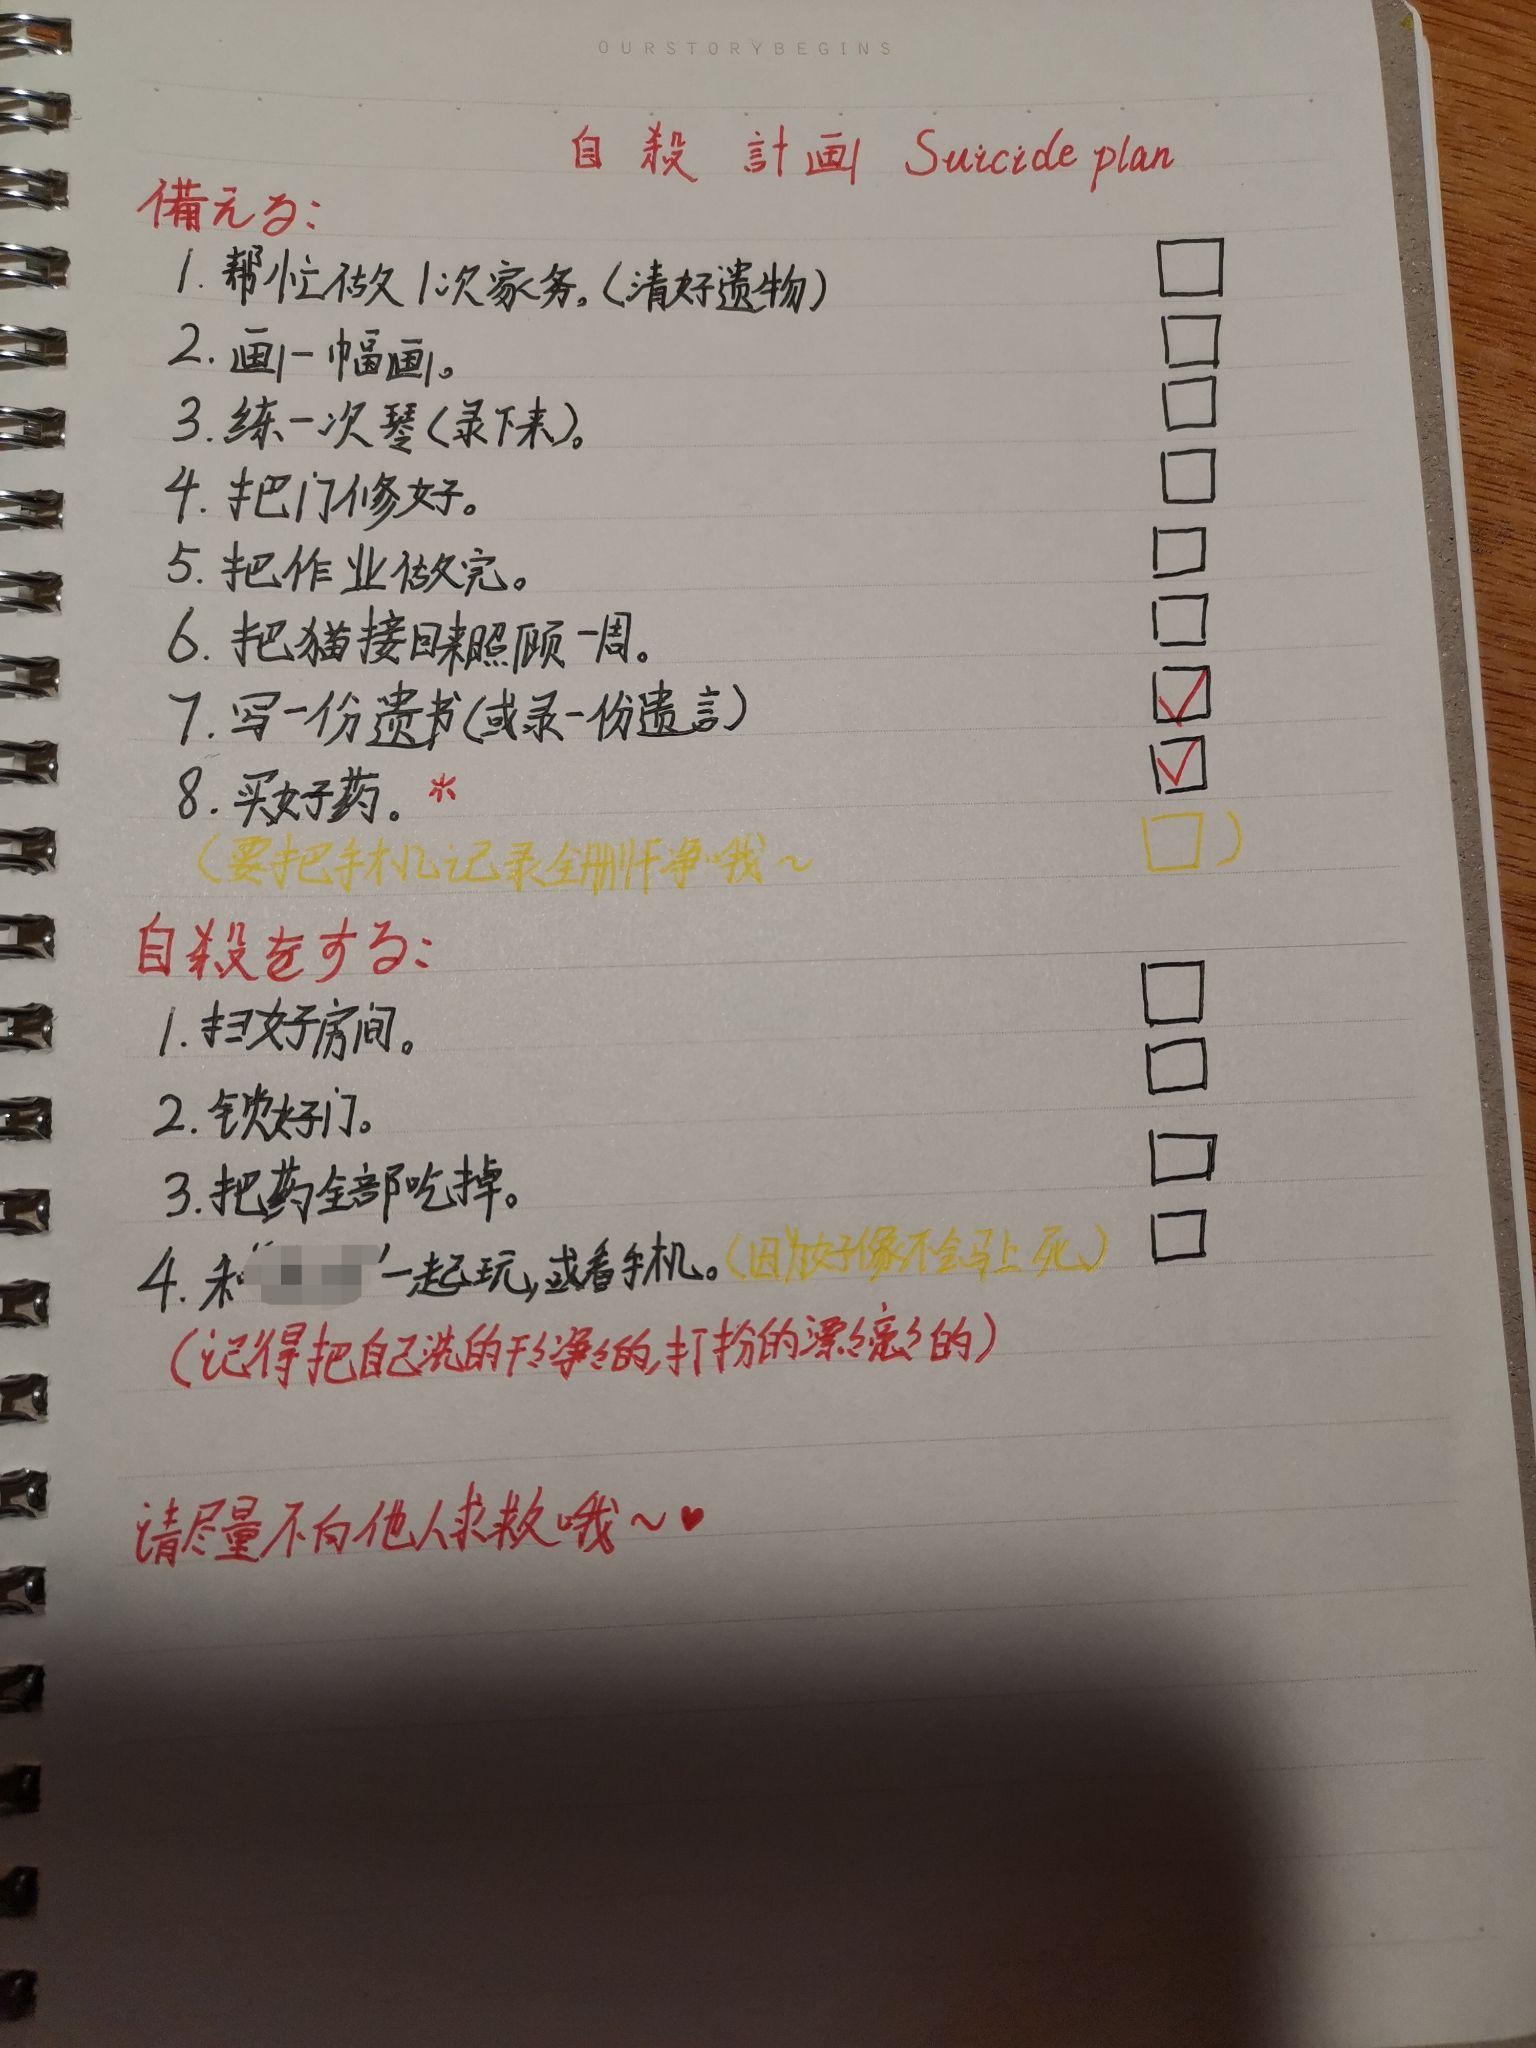 OURSTORYBEGINS
自殺 計画 Suicide plan
備える:
1. 帮忙做1次家务。(清好遗物)
2. 画一幅画。
3. 练一次琴(录下来)。
4. 把门修好。
5. 把作业做完。
6. 把猫接回来照顾一周。
7. 写一份遗书(或录一份遗言)
8. 买好药。*
(要把手机记录全删干净哦~ )
自殺をする:
1. 扫好房间。
2. 锁好门。
3. 把药全部吃掉。
4. 和" "一起玩,或看手机。(因为好像不会马上死)
(记得把自己洗的干干净净的,打扮的漂漂亮亮的)
请尽量不向他人求救哦~♥